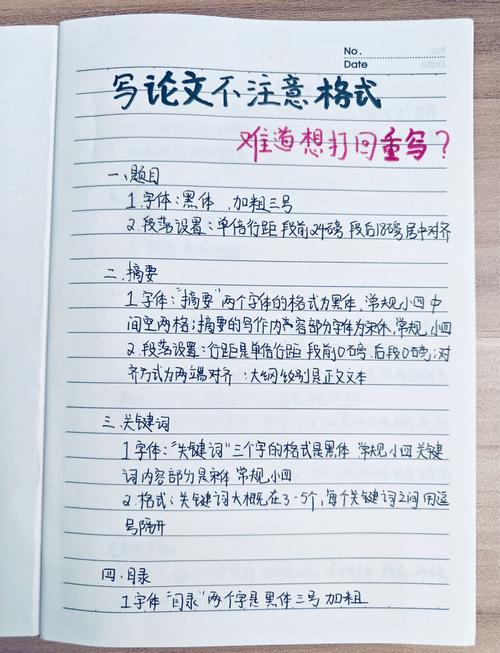 No.
Date
写论文不注意格式
难道想打回重写?
一、题目
1.字体:黑体,加粗三号
2.段落设置:单倍行距 段前24磅 段后18磅 居中对齐
二.摘要
1.字体:"摘要"两个字体的格式为黑体、常规,小四 中
间空两格;摘要的写作内容部分字体为宋体,常规,小四
2.段落设置:行距是单倍行距 段前0磅、后段0磅;对
齐方式为两端对齐:大纲级别是正文文本
三.关键词
1.字体:"关键词"三个字的格式是黑体 常规,小四 关键
词内容部分是宋体 常规,小四
2.格式:关键词大概在3-5个,每个关键词之间用逗
号隔开
四.目录
1.字体"目录"两个字是黑体三号 加粗